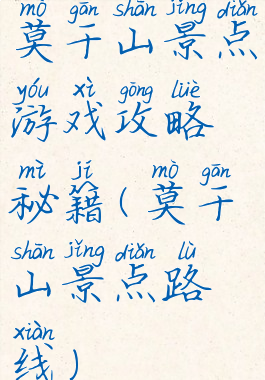 mò gān shān jǐng diǎn
莫干山景点
yóu xì gōng lüè
游戏攻略
mì jí mò gān
秘籍(莫干
shān jǐng diǎn lù
山景点路
xiàn
线)